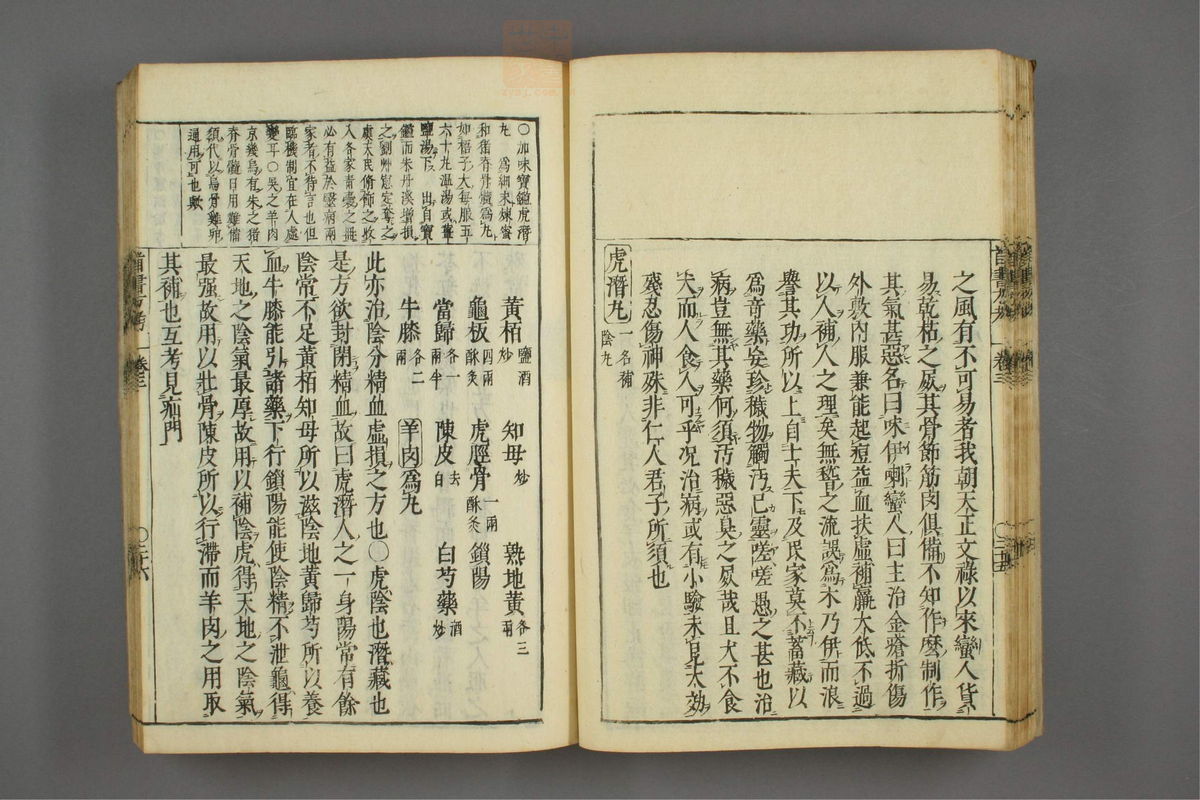 之風有不可易者我朝天正文祿以來蠻人貨
易乾枯之屍其骨節筋肉俱備不知作麼制作
其氣甚惡名曰味伊喇蠻人曰主治金瘡折傷
外敷內服兼能起痘益血扶虛補羸大低不過
以人補人之理矣無稽之流誤為木乃伊而浪
譽其功所以上自士夫下及民家莫不蓄藏以
為奇藥妄珍穢物觸汚已靈嗟嗟愚之甚也治
病豈無其藥何須汚穢惡臭之屍哉且犬不食
犬而人食人可乎況治病或有小驗未見大効
殘忍傷神殊非仁人君子所須也
虎潛丸 一名補陰丸
○加味寶鑑虎潛
丸 為細末煉蜜
和猪脊丹瀆為丸
如梧子大每服五
六十丸温湯或薑
鹽湯下 出自寶
鑑而朱丹溪增損
之劉
虞天民脩飾之收
入各家青囊之
必有益於醫病兩
家者不待言也但
臨機制宜在人處
變耳○吳之羊肉
京幾烏有朱之猪
脊骨髓日用難備
須代以烏骨雞卵
通用可也歟
黃栢 鹽酒炒 知母 炒 熟地黃 各三兩
龜板 四兩酥炙 虎脛骨 一兩酥炙 鎖陽
當歸 各一兩半 陳皮 去白 白芍藥 酒炒
牛膝 各二兩 羊肉為丸
此亦治陰分精血虛損之方也○虎陰也潛藏也
是方欲封閉精血故曰虎潛人之一身陽常有餘
陰常不足黃栢知母所以滋陰地黃歸芍所以養
血牛膝能引諸藥下行鎖陽能使陰精不泄龜得
天地之陰氣最厚故用以補陰虎得天地之陰氣
最强故用以壯骨陳皮所以行滯而羊肉之用取
其補也互考見疝門
卷三
卷三
○三十六